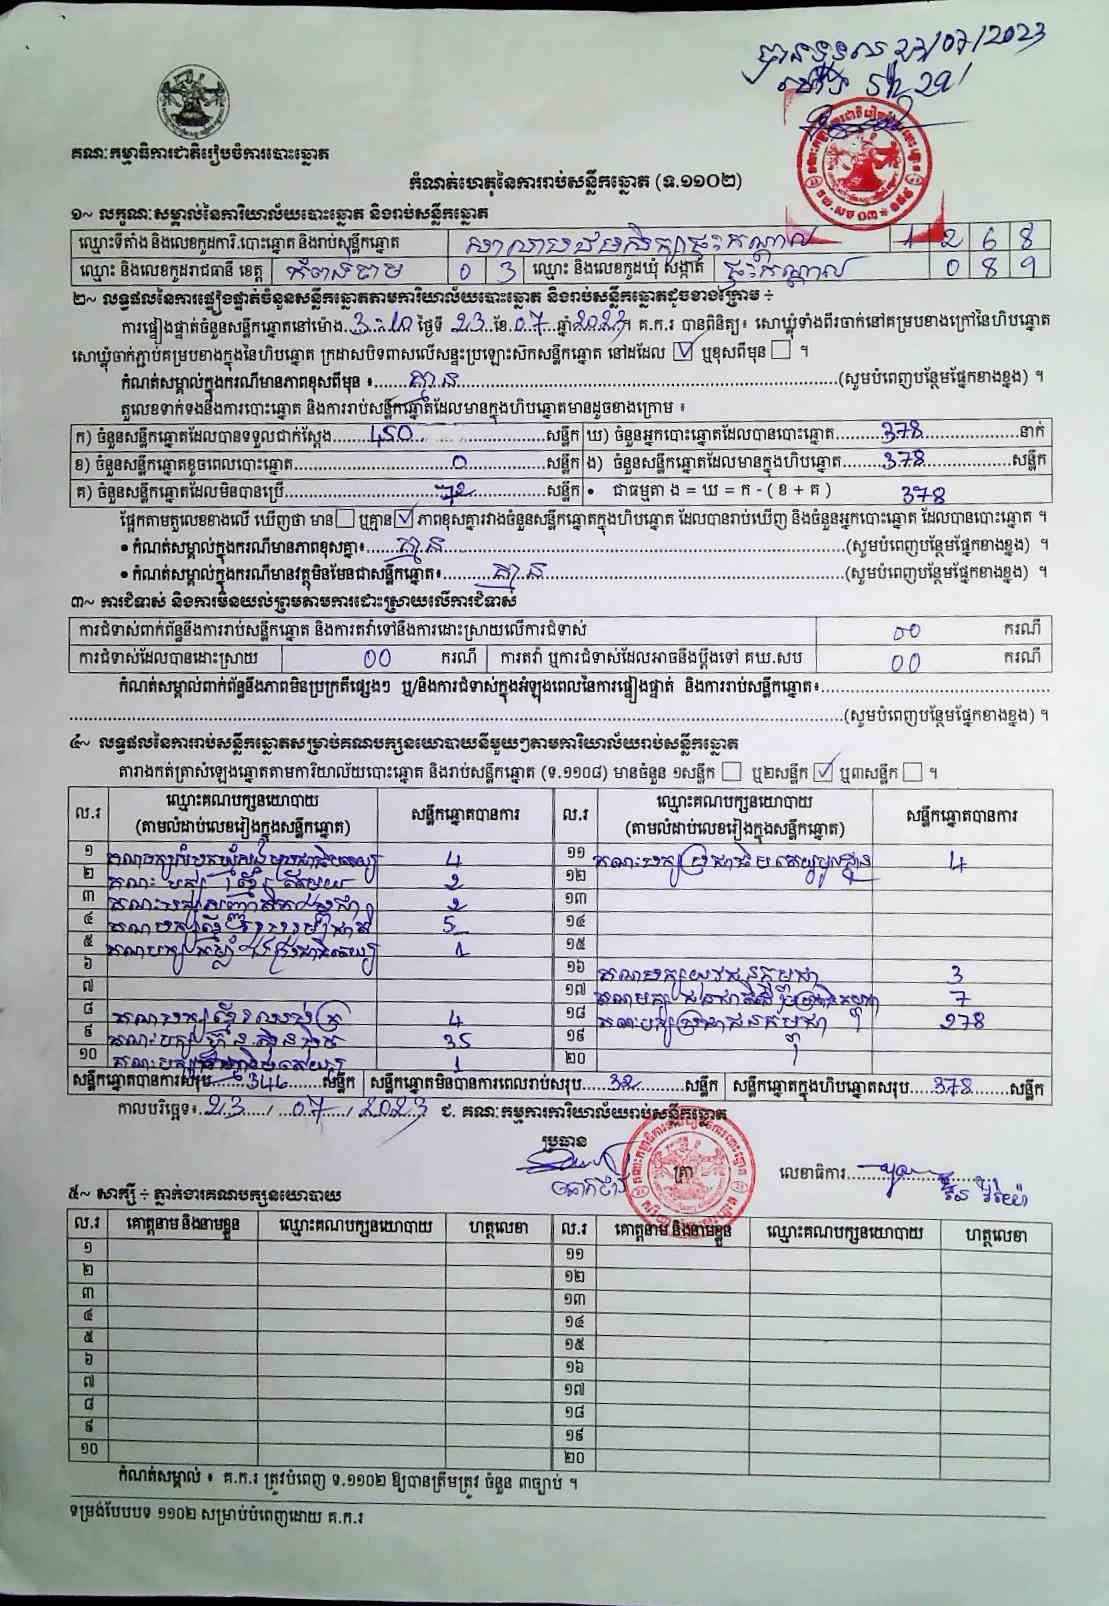 បានទទួល 23/07/2023
គណៈកម្មាធិការជាតិរៀបចំការបោះឆ្នោត
កំណត់ហេតុនៃការរាប់សន្លឹកឆ្នោត (ទ.១១០២)
១~ លក្ខណៈសម្គាល់នៃការិយាល័យបោះឆ្នោត និងរាប់សន្លឹកឆ្នោត
ឈ្មោះទីតាំង និងលេខកូដការិ.បោះឆ្នោត និងរាប់សន្លឹកឆ្នោត សាលាបឋមសិក្សាផ្ទះកណ្តាល 1 2 6 8
ឈ្មោះ និងលេខកូដរាជធានី ខេត្ត កំពង់ចាម 0 3 ឈ្មោះ និងលេខកូដឃុំ សង្កាត់ ផ្ទះកណ្តាល 0 8 9
២~ លទ្ធផលនៃការផ្ទៀងផ្ទាត់ចំនួនសន្លឹកឆ្នោតតាមការិយាល័យបោះឆ្នោត និងរាប់សន្លឹកឆ្នោតដូចខាងក្រោម ÷
ការផ្ទៀងផ្ទាត់ចំនួនសន្លឹកឆ្នោតនៅម៉ោង 3:10 ថ្ងៃទី 23 ខែ 07 ឆ្នាំ 2023។ គ.ក.រ បានពិនិត្យ៖ សោឃ្លុំទាំងពីរចាក់នៅគម្របខាងក្រៅនៃហិបឆ្នោត
សោឃ្លុំចាក់ភ្ជាប់គម្របខាងក្នុងនៃហិបឆ្នោត ក្រដាសបិទពាសលើសន្ទះប្រឡោះស៊កសន្លឹកឆ្នោត នៅដដែល ☑ ឬខុសពីមុន ☐ ។
កំណត់សម្គាល់ក្នុងករណីមានភាពខុសពីមុន ៖ គ្មាន (សូមបំពេញបន្ថែមផ្នែកខាងខ្នង) ។
តួលេខទាក់ទងនឹងការបោះឆ្នោត និងការរាប់សន្លឹកឆ្នោតដែលមានក្នុងហិបឆ្នោតមានដូចខាងក្រោម ៖
ក) ចំនួនសន្លឹកឆ្នោតដែលបានទទួលជាក់ស្តែង 450 សន្លឹក ឃ) ចំនួនអ្នកបោះឆ្នោតដែលបានបោះឆ្នោត 378 នាក់
ខ) ចំនួនសន្លឹកឆ្នោតខូចពេលបោះឆ្នោត 0 សន្លឹក ង) ចំនួនសន្លឹកឆ្នោតដែលមានក្នុងហិបឆ្នោត 378 សន្លឹក
គ) ចំនួនសន្លឹកឆ្នោតដែលមិនបានប្រើ 72 សន្លឹក • ជាធម្មតា ង = ឃ = ក - ( ខ + គ ) 378
ផ្អែកតាមតួលេខខាងលើ ឃើញថា មាន ☐ ឬគ្មាន ☑ ភាពខុសគ្នារវាងចំនួនសន្លឹកឆ្នោតក្នុងហិបឆ្នោត ដែលបានរាប់ឃើញ និងចំនួនអ្នកបោះឆ្នោត ដែលបានបោះឆ្នោត ។
• កំណត់សម្គាល់ក្នុងករណីមានភាពខុសគ្នា៖ គ្មាន (សូមបំពេញបន្ថែមផ្នែកខាងខ្នង) ។
• កំណត់សម្គាល់ក្នុងករណីមានវត្ថុមិនមែនជាសន្លឹកឆ្នោត៖ គ្មាន (សូមបំពេញបន្ថែមផ្នែកខាងខ្នង) ។
៣~ ការជំទាស់ និងការមិនយល់ព្រមតាមការដោះស្រាយលើការជំទាស់
ការជំទាស់ពាក់ព័ន្ធនឹងការរាប់សន្លឹកឆ្នោត និងការតវ៉ាទៅនឹងការដោះស្រាយលើការជំទាស់ 00 ករណី
ការជំទាស់ដែលបានដោះស្រាយ 00 ករណី ការតវ៉ា ឬការជំទាស់ដែលអាចនឹងប្តឹងទៅ គឃ.សប 00 ករណី
កំណត់សម្គាល់ពាក់ព័ន្ធនឹងភាពមិនប្រក្រតីផ្សេងៗ ឬ/និងការជំទាស់ក្នុងអំឡុងពេលនៃការផ្ទៀងផ្ទាត់ និងការរាប់សន្លឹកឆ្នោត៖
(សូមបំពេញបន្ថែមផ្នែកខាងខ្នង) ។
៤~ លទ្ធផលនៃការរាប់សន្លឹកឆ្នោតសម្រាប់គណបក្សនយោបាយនីមួយៗតាមការិយាល័យរាប់សន្លឹកឆ្នោត
តារាងកត់ត្រាសំឡេងឆ្នោតតាមការិយាល័យបោះឆ្នោត និងរាប់សន្លឹកឆ្នោត (ទ.១១០៨) មានចំនួន ១សន្លឹក ☐ ឬ២សន្លឹក ☑ ឬ៣សន្លឹក ☐ ។
ល.រ ឈ្មោះគណបក្សនយោបាយ (តាមលំដាប់លេខរៀងក្នុងសន្លឹកឆ្នោត) សន្លឹកឆ្នោតបានការ ល.រ ឈ្មោះគណបក្សនយោបាយ (តាមលំដាប់លេខរៀងក្នុងសន្លឹកឆ្នោត) សន្លឹកឆ្នោតបានការ
១ 4 ១១ គណបក្សប្រជាធិបតេយ្យមូលដ្ឋាន 4
២ 2 ១២
៣ 2 ១៣
៤ 5 ១៤
៥ 1 ១៥
៦ ១៦ គណបក្សយុវជនកម្ពុជា 3
៧ ១៧ 7
៨ 4 ១៨ គណបក្សប្រជាជនកម្ពុជា 278
៩ គណបក្សហ្វ៊ុនស៊ិនប៉ិច 35 ១៩
១០ 1 ២០
សន្លឹកឆ្នោតបានការសរុប 346 សន្លឹក សន្លឹកឆ្នោតមិនបានការពេលរាប់សរុប 32 សន្លឹក សន្លឹកឆ្នោតក្នុងហិបឆ្នោតសរុប 378 សន្លឹក
កាលបរិច្ឆេទ៖ 23 / 07 / 2023 ជ. គណៈកម្មការការិយាល័យរាប់សន្លឹកឆ្នោត
ប្រធាន
លេខាធិការ
៥~ សាក្សី ÷ ភ្នាក់ងារគណបក្សនយោបាយ
ល.រ គោត្តនាម និងនាមខ្លួន ឈ្មោះគណបក្សនយោបាយ ហត្ថលេខា ល.រ គោត្តនាម និងនាមខ្លួន ឈ្មោះគណបក្សនយោបាយ ហត្ថលេខា
១ ១១
២ ១២
៣ ១៣
៤ ១៤
៥ ១៥
៦ ១៦
៧ ១៧
៨ ១៨
៩ ១៩
១០ ២០
កំណត់សម្គាល់ ៖ គ.ក.រ ត្រូវបំពេញ ទ.១១០២ ឱ្យបានត្រឹមត្រូវ ចំនួន ៣ច្បាប់ ។
ទម្រង់បែបបទ ១១០២ សម្រាប់បំពេញដោយ គ.ក.រ